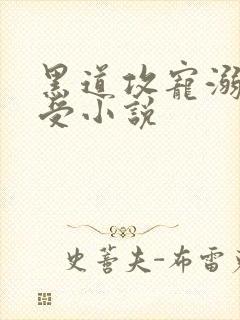 黑道攻寵溺
受小說
史蒂夫-布雷